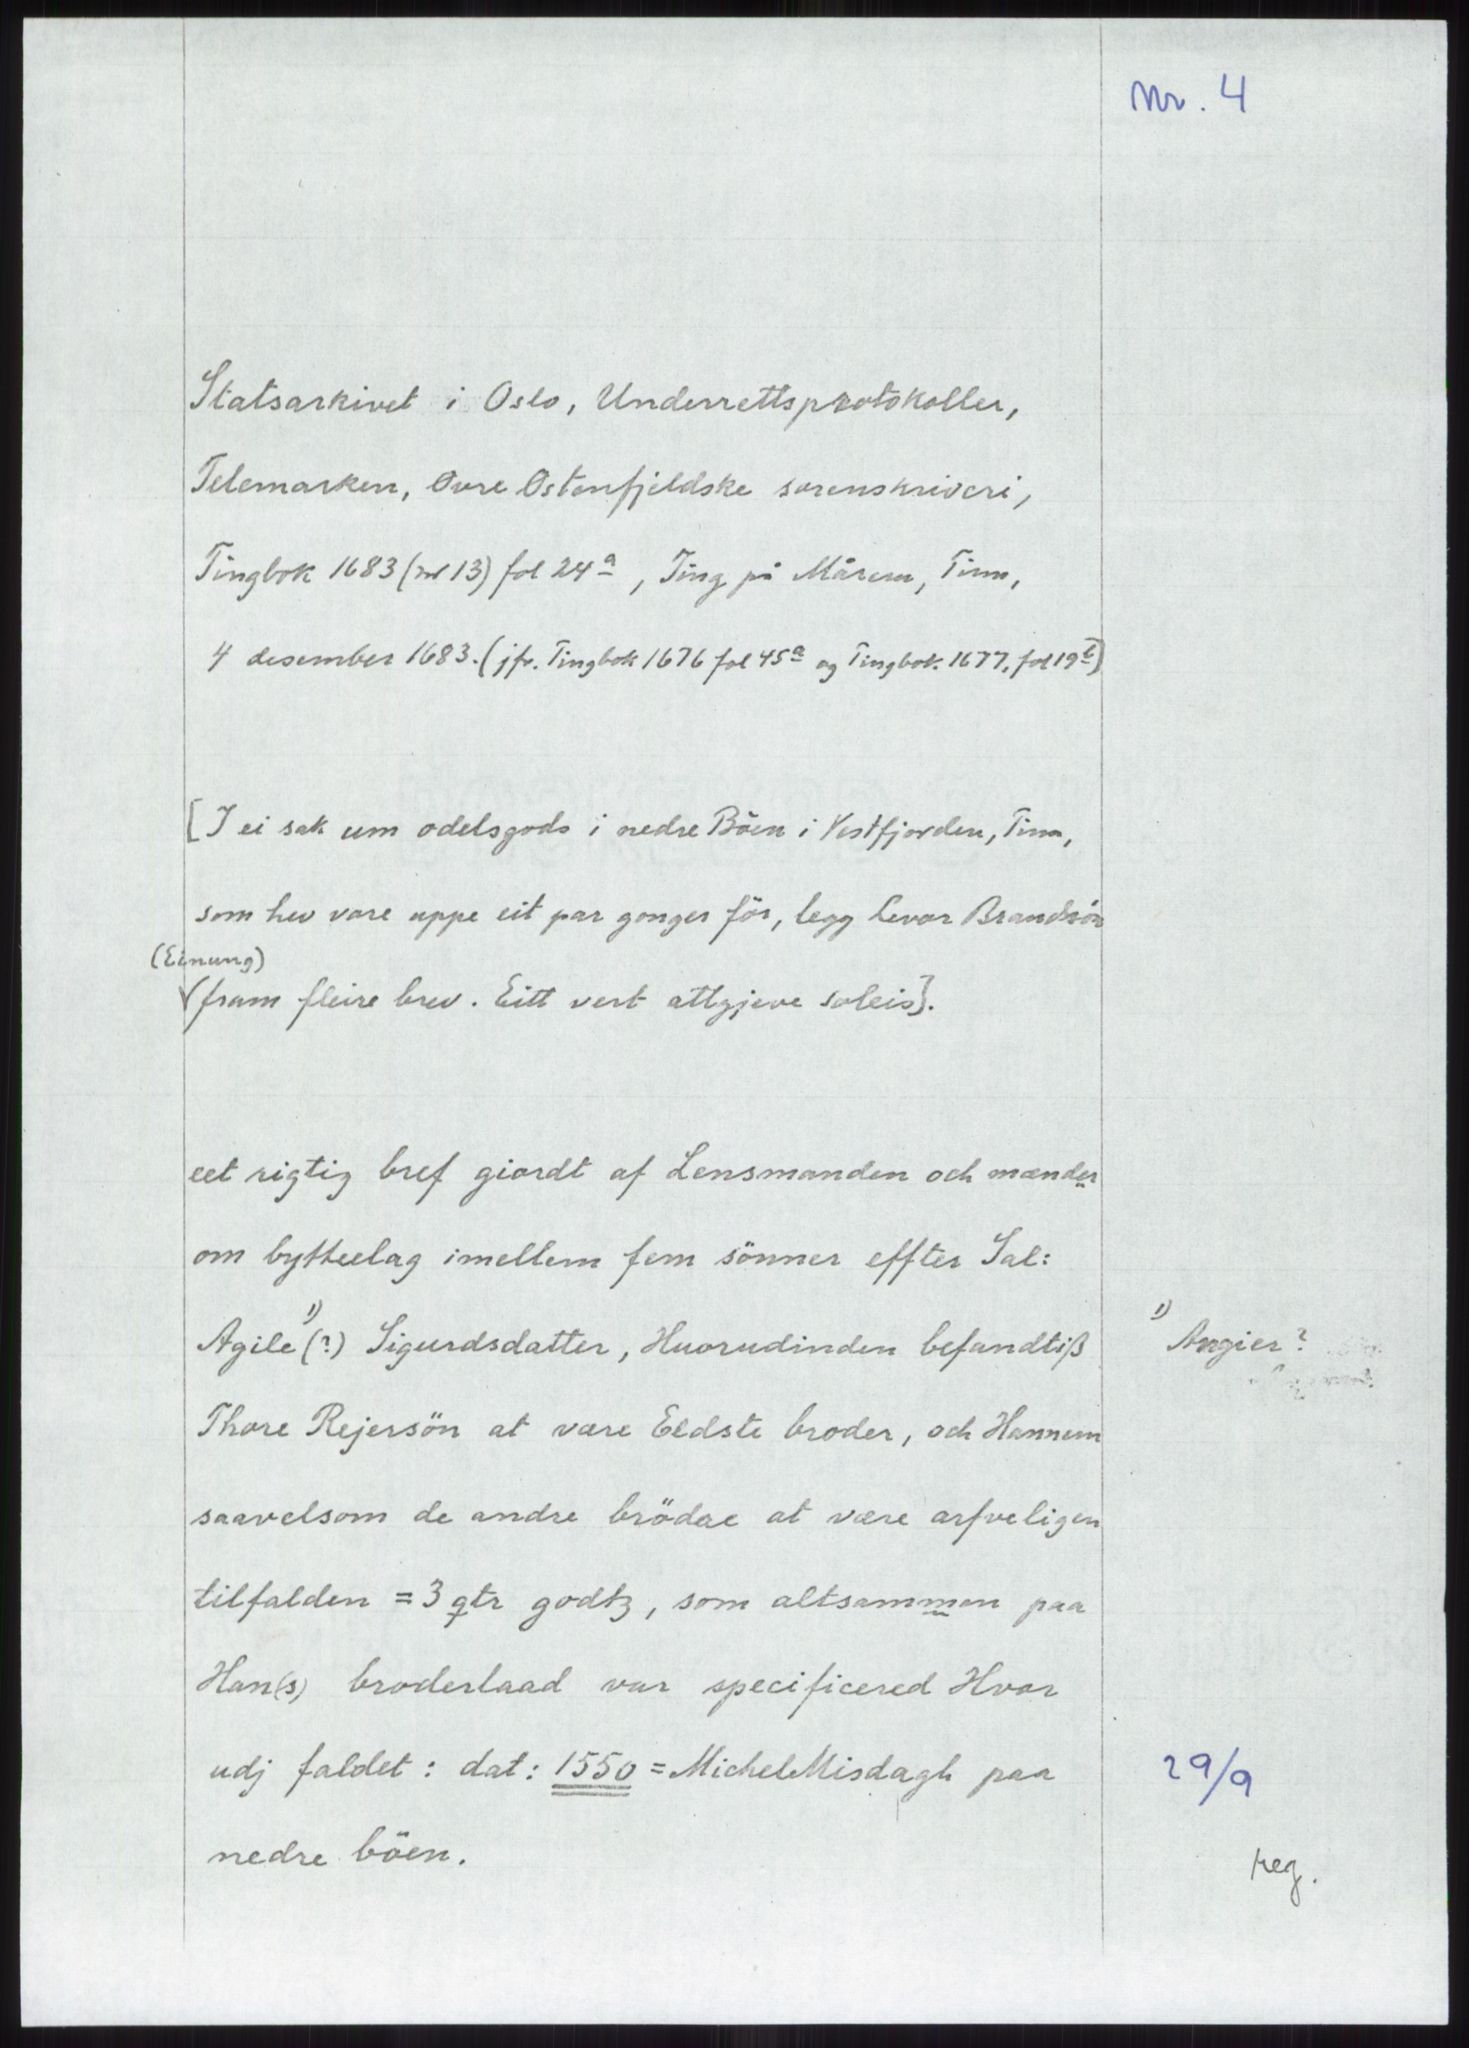 Nr. 4
Statsarkivet i Oslo, Underrettsprotokoller,
Telemarken, Øvre Østenfjeldske sorenskriveri,
Tingbok 1683 (nr 13) fol 24a, Ting på Mårem, Tinn,
4 desember 1683. (jfr. Tingbok 1676 fol 45a og Tingbok 1677, fol 19b)
[I ei sak um odelsgods i nedre Böen i Vestfjorden, Tinn,
som hev vore uppe eit par gonger för, legg Levor Brandsön
(Einung)
fram fleire brev. Eitt vert attgjeve soleis].
eet rigtig bref giordt af Lensmanden och mænder
om bytteelag imellem fem sönner effter Sal:
Agile 1) (?) Sigurdsdatter, Huorudinden befandtiß
1) Angier?
Thore Rejersön at være Eldste broder, och Hannem
saavelsom de andre brödre at være arfveligen
tilfalden = 3 qtr godtz, som altsammen paa
Han(s) broderlaad var specificered Hvor
udj faldet: dat: 1550 = Michel Misdagh paa
29/9
nedre böen.
reg.